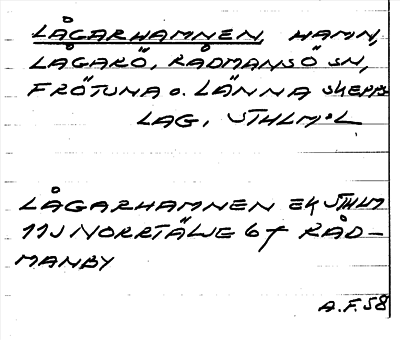 LÅGARHAMNEN, HAMN,
LÅGARÖ, RÅDMANSÖ SN,
FRÖTUNA o. LÄNNA SKEPPS
LAG, STHLM:L
LÅGARHAMNEN EK STHLM
11J NORRTÄLJE 6f RÅD-
MANBY
A.F. 58